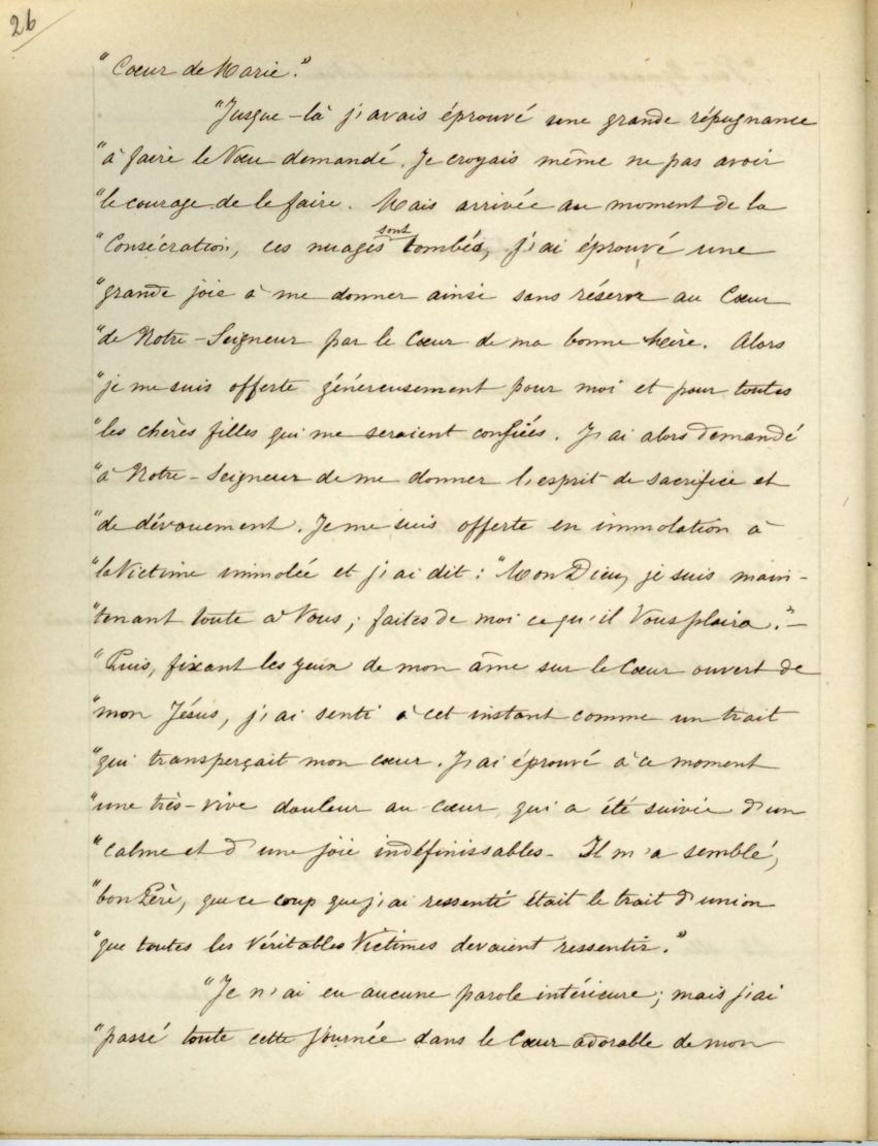 26
"Cœur de Marie."
"Jusque-là j'avais éprouvé une grande répugnance
"à faire le Vœu demandé. Je croyais même ne pas avoir
"le courage de le faire. Mais arrivée au moment de la
"Consécration, ces nuages sont tombés, j'ai éprouvé une
"grande joie à me donner ainsi sans réserve au Cœur
"de Notre-Seigneur par le Cœur de ma bonne Mère. Alors
"je me suis offerte généreusement pour moi et pour toutes
"les chères filles qui me seraient confiées. J'ai alors demandé
"à Notre-Seigneur de me donner l'esprit de sacrifice et
"de dévouement. Je me suis offerte en immolation à
"la Victime immolée et j'ai dit: "Mon Dieu, je suis main-
"tenant toute à Vous; faites de moi ce qu'il Vous plaira."-
"Puis, fixant les yeux de mon âme sur le Cœur ouvert de
"mon Jésus, j'ai senti à cet instant comme un trait
"qui transperçait mon cœur. J'ai éprouvé à ce moment
"une très-vive douleur au cœur, qui a été suivie d'un
"calme et d'une joie indéfinissables- Il m'a semblé,
"bon Père, que ce coup que j'ai ressenti était le trait d'union
"que toutes les Véritables Victimes devaient ressentir."
"Je n'ai eu aucune parole intérieure; mais j'ai
"passé toute cette journée dans le Cœur adorable de mon